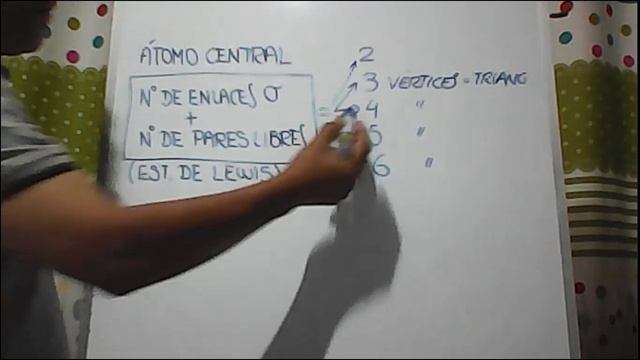 ÁTOMO CENTRAL
Nº DE ENLACES σ
+
Nº DE PARES LIBRES
(EST. DE LEWIS)
=
2
3 VÉRTICES = TRIANG
4 "
5 "
6 "